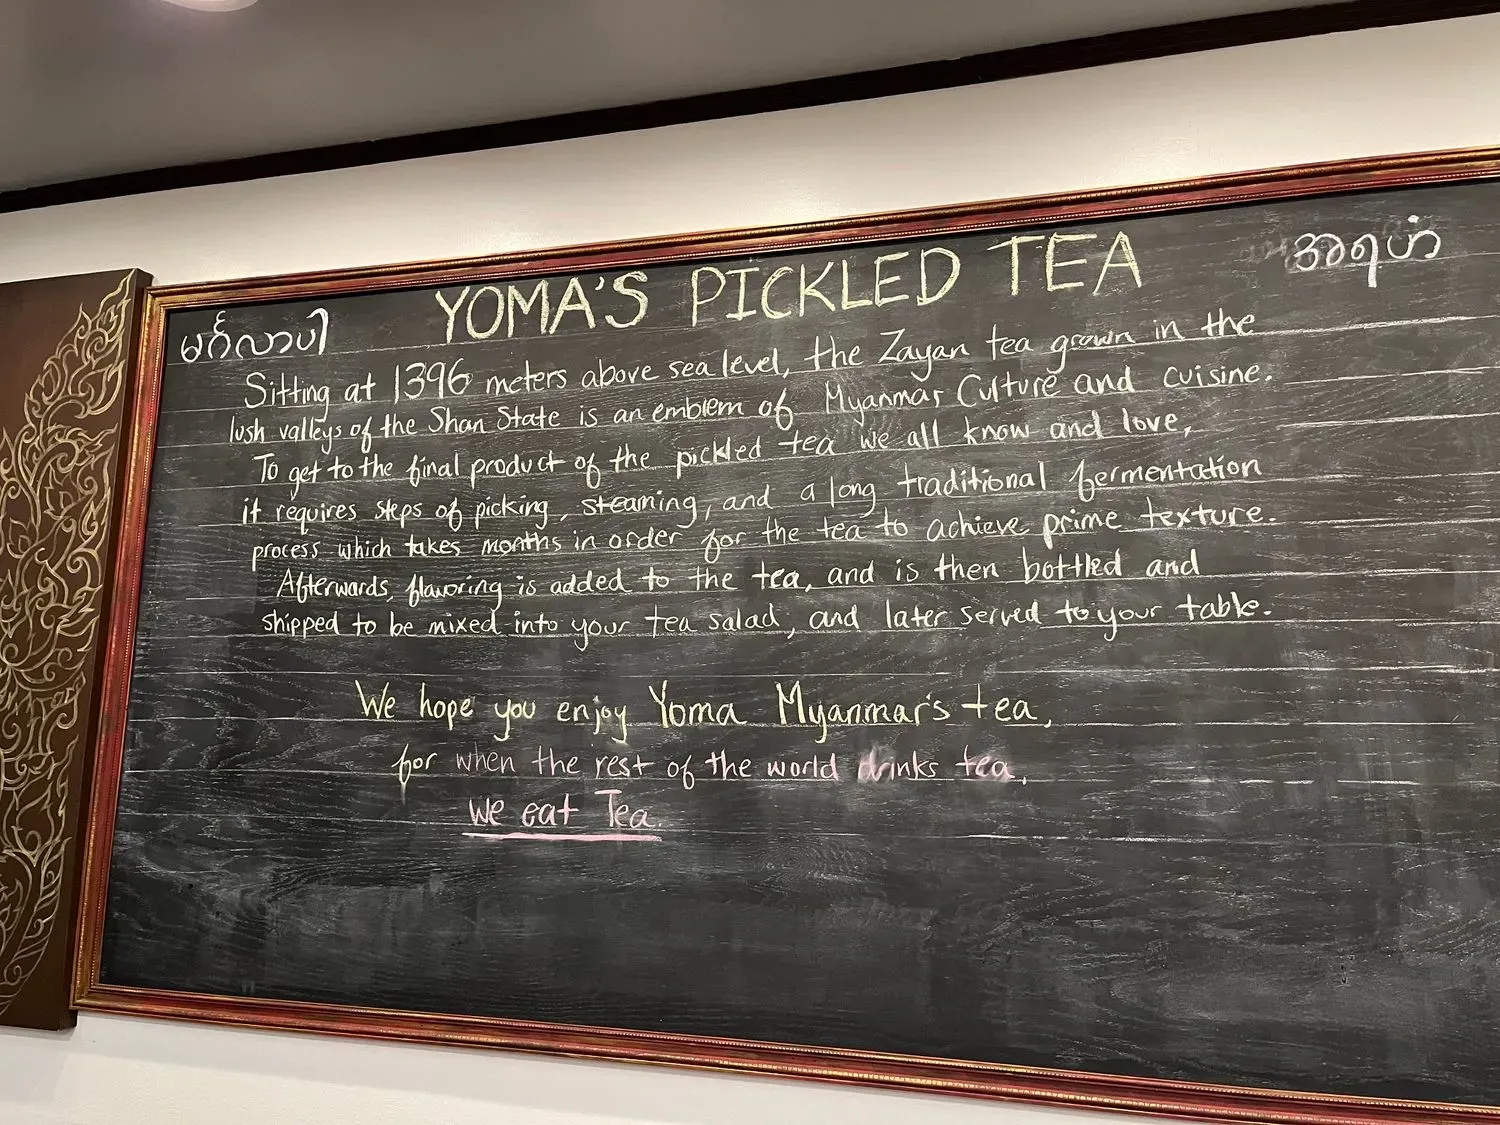 YOMA'S PICKLED TEA
မင်္ဂလာပါ
Sitting at 1396 meters above sea level, the Zayan tea grown in the
lush valleys of the Shan State is an emblem of Myanmar Culture and cuisine.
To get to the final product of the pickled tea we all know and love,
it requires steps of picking, steaming, and a long traditional fermentation
process which takes months in order for the tea to achieve prime texture.
Afterwards, flavoring is added to the tea, and is then bottled and
shipped to be mixed into your tea salad, and later served to your table.
We hope you enjoy Yoma Myanmar's tea,
for when the rest of the world drinks tea,
we eat Tea.